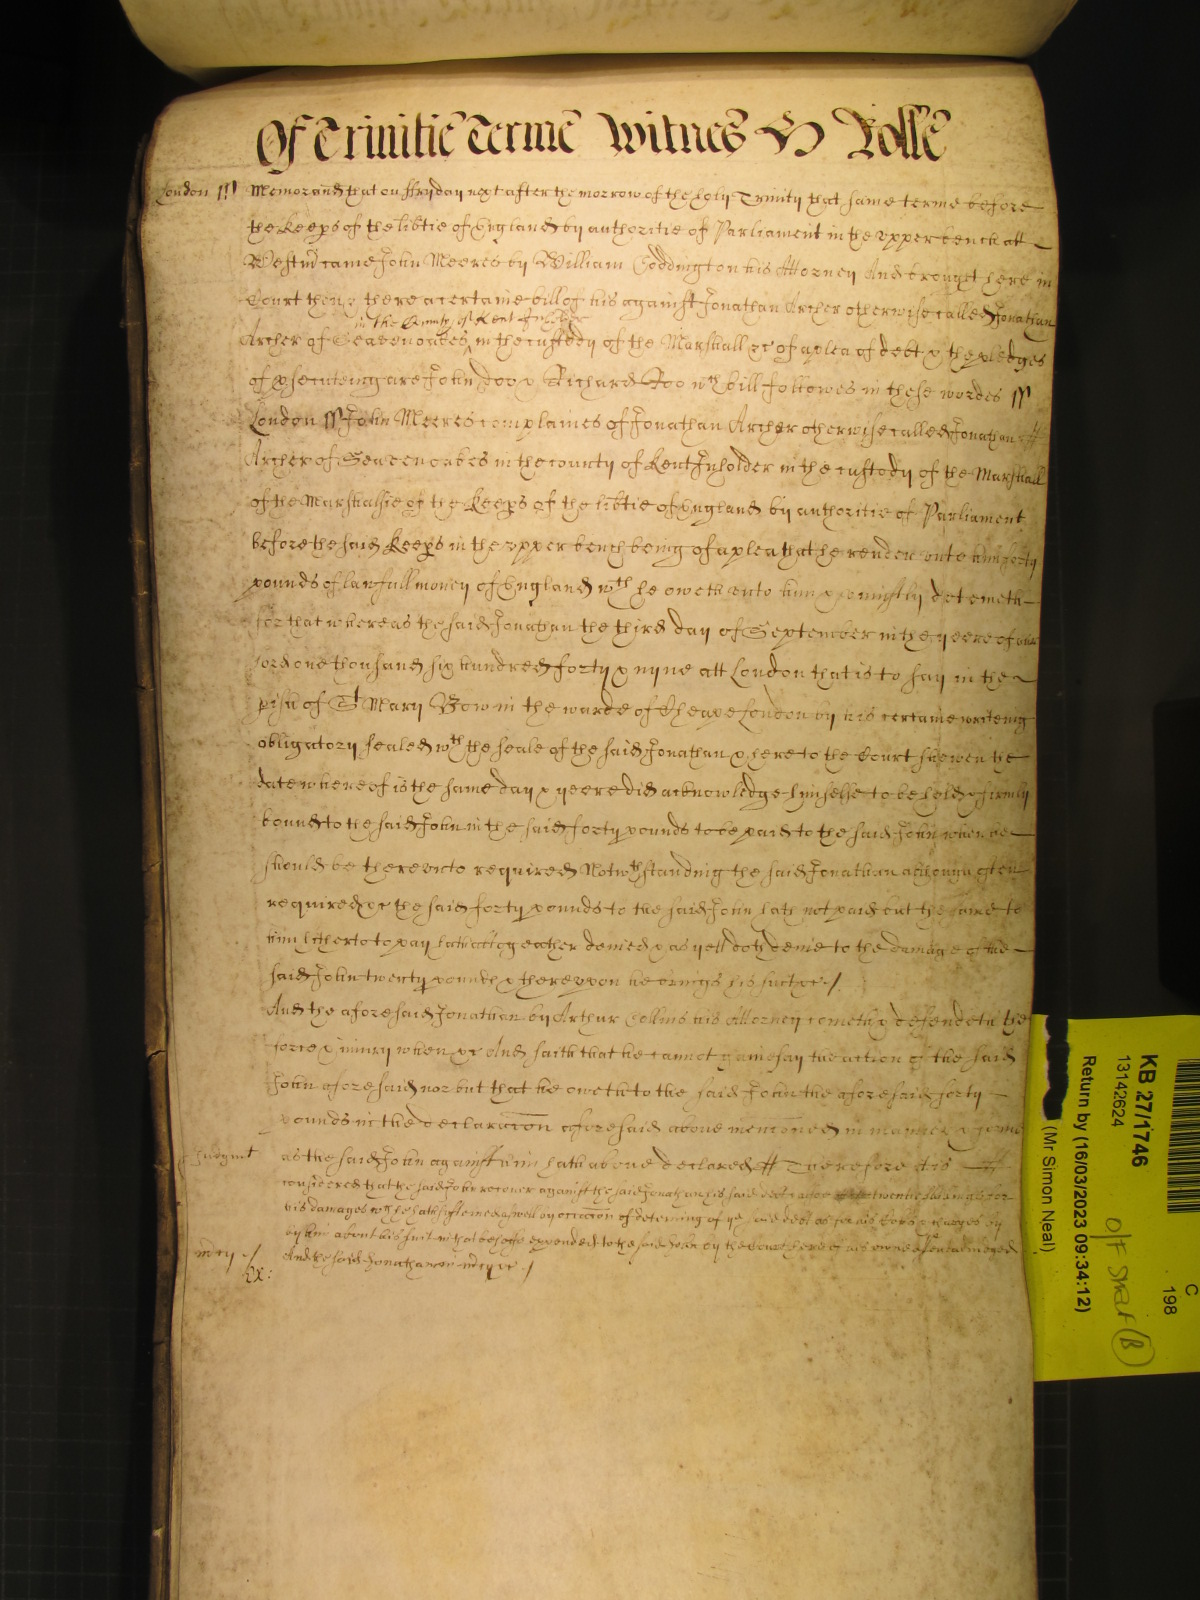 Of Trinitie Terme Witnes H Rolle
London ss Memorand that on ffryday next after the morrow of the holy Trinity that same terme before
the Keeps of the libtie of England by authoritie of Parliament in the vpper bench att
Westm came John Meeres by William Coddington his Attorney And brought here in
Court then & there a certaine bill of his against Jonathan Archer otherwise called Jonathan
in the County of Kent Inholder
Archer of Seavenoakes in the custody of the Marshall &c of a plea of debt & the pledges
of psecuteing are John Doo & Richard Roo wch bill followes in these wordes ss
London ss John Meeres complaines of Jonathan Archer otherwise called Jonathan
Archer of Seavenoakes in the county of Kent Inholder in the custody of the Marshall
of the Marshalsie of the Keeps of the libtie of England by authoritie of Parliament
before the said Keeps in the vpper bench being of a plea that he render vnto him forty
pounds of lawfull money of England wch he oweth vnto him & vniustly deteineth
for that whereas the said Jonathan the third day of September in the yeere of our
lord one thousand six hundred forty & nyne att London that is to say in the
pish of St Mary Bow in the warde of Cheape London by his certaine writeing
obligatory sealed wth the seale of the said Jonathan & here to the Court shewen the
date whereof is the same day & yeere did acknowledge himselfe to be held & firmly
bound to the said John in the said forty pounds to be paid to the said John when he
should be therevnto required Notwthstanding the said Jonathan although often
required &c the said forty pounds to the said John hath not paid but the same to
him hitherto to pay hath altogeather denied & as yett doth denie to the damage of the
said John twenty pounds & therevpon he brings his suct &c /
And the aforesaid Jonathan by Arthur Collins his Attorney cometh & defendeth the
force & iniury when &c And saith that he cannot gainesay the action of the said
John aforesaid nor but that he oweth to the said John the aforesaid forty
pounds in the declaracon aforesaid above menconed in manner & forme
Judgmt as the said John against him hath above declared Therefore it is
considered that the said John recover against the said Jonathan his said debt
his damages wch he hath susteined aswell by occacon of deteining of ye said debt as for his Costs & charges by
by him about his suit in that behalfe expended to the said John by the Court here
mcy / And the said Jonathan in mcy &c /
Ex:
KB 27/1746
13142624
Return by (16/03/2023 09:34:12)
(Mr Simon Neal)
C
198